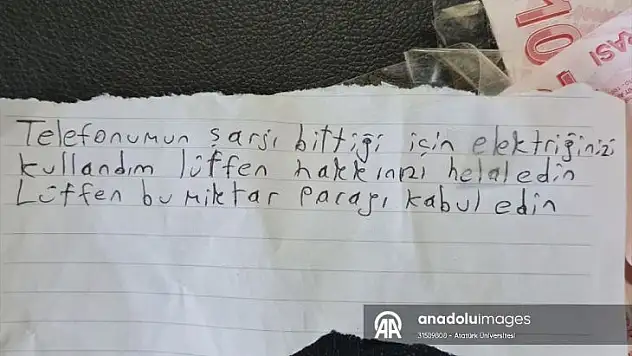 10
ASI
Telefonumun şarjı bittiği için elektriğinizi
kullandım lütfen hakkınızı helal edin
Lütfen bu miktar parayı kabul edin
AA anadoluimages
31509808 - Atatürk Üniversitesi